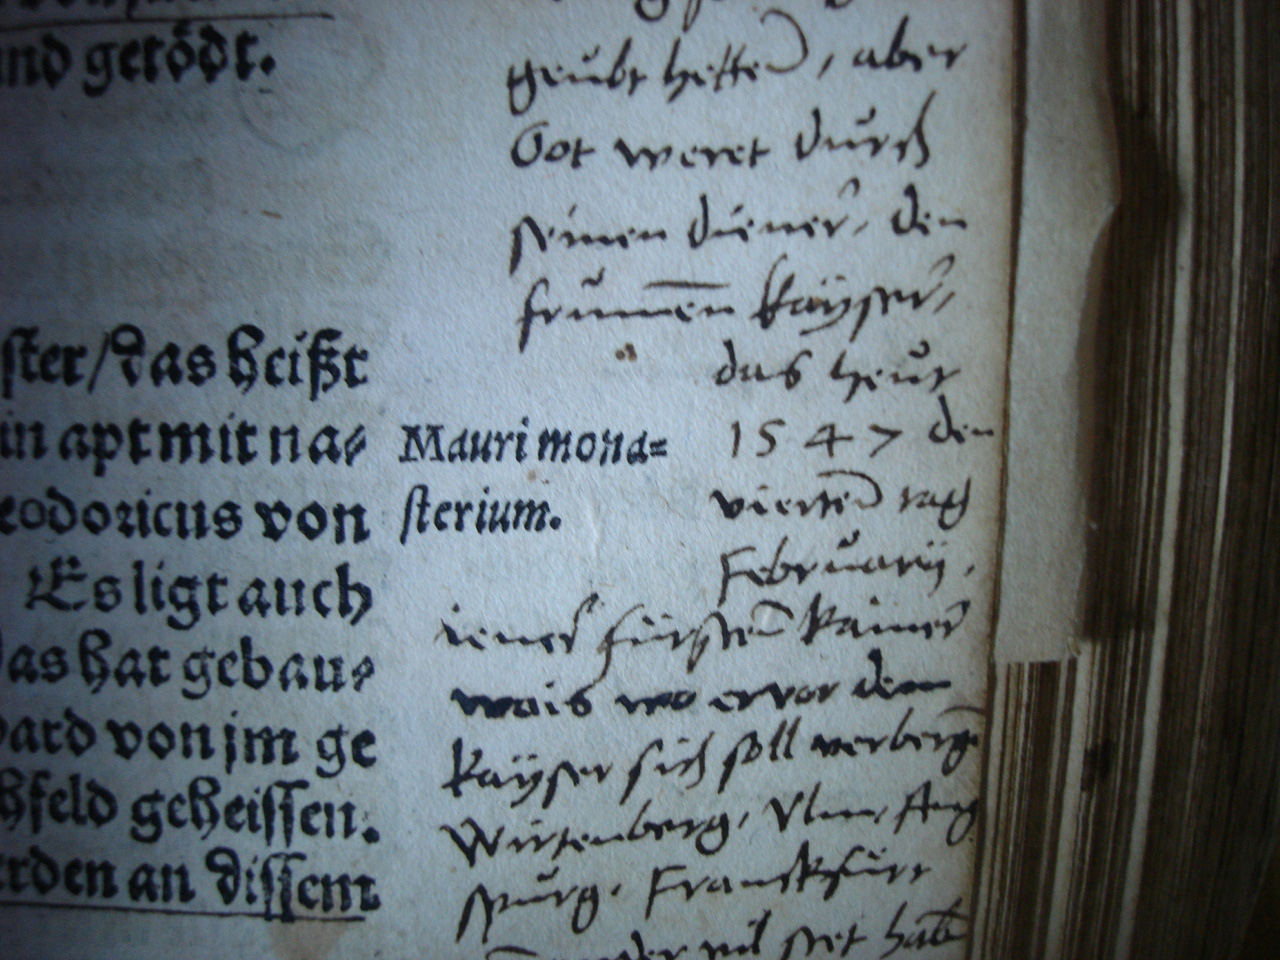 und getödt.
ster/das heißt
in apt mit na⸗
eodoricus von
Es ligt auch
das hat gebau⸗
hard von jm ge
hfeld geheissen.
erden an dissem
Mauri mona⸗
sterium.
geubt hetten, aber
Got weret durch
seinen diener, den
frummen kayser,
das heut
1547 den
vierten tag
Februarij,
iener fürsten kainer
wais wo er vor dem
kayser sich soll verbergen
Wirtenberg, Ulm, Aug
spurg, Franckfurt
vil stet hab